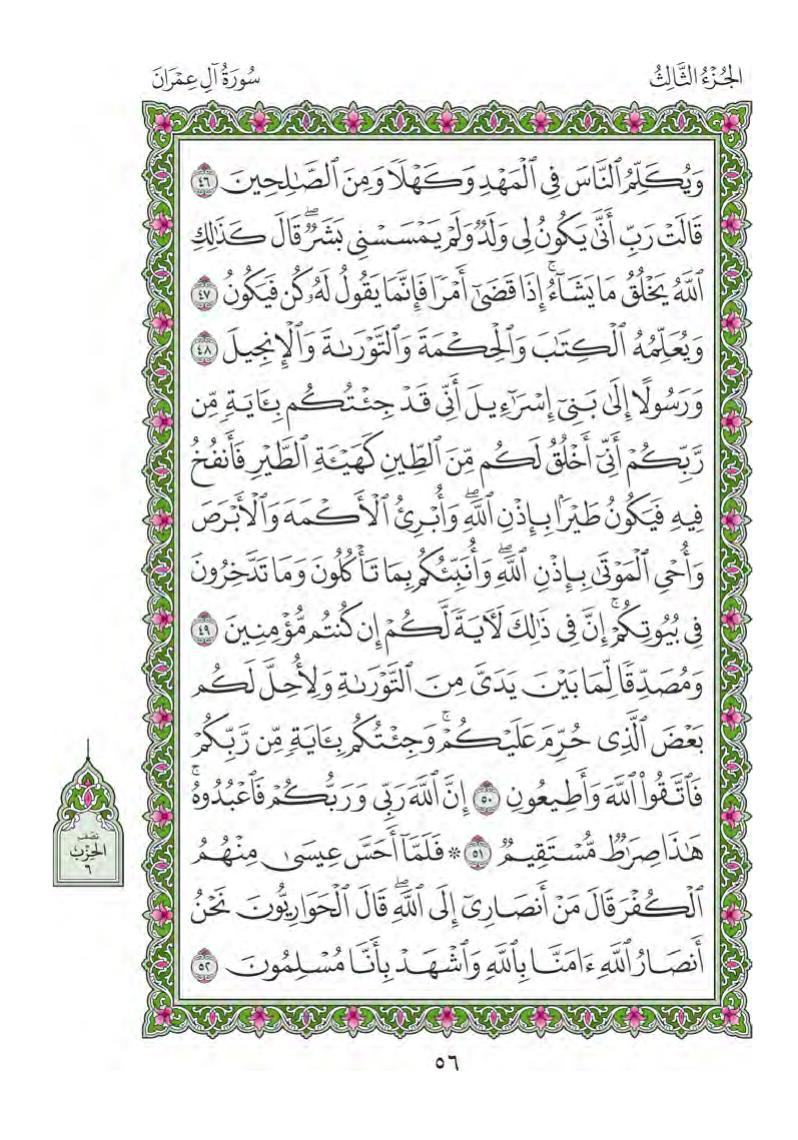 الجُزْءُ الثَّالِثُ
سُورَةُ آلِ عِمْرَانَ
وَيُكَلِّمُ ٱلنَّاسَ فِى ٱلْمَهْدِ وَكَهْلًا وَمِنَ ٱلصَّٰلِحِينَ ٤٦
قَالَتْ رَبِّ أَنَّىٰ يَكُونُ لِى وَلَدٌ وَلَمْ يَمْسَسْنِى بَشَرٌۖ قَالَ كَذَٰلِكِ
ٱللَّهُ يَخْلُقُ مَا يَشَآءُۚ إِذَا قَضَىٰٓ أَمْرًا فَإِنَّمَا يَقُولُ لَهُۥ كُن فَيَكُونُ ٤٧
وَيُعَلِّمُهُ ٱلْكِتَٰبَ وَٱلْحِكْمَةَ وَٱلتَّوْرَىٰةَ وَٱلْإِنجِيلَ ٤٨
وَرَسُولًا إِلَىٰ بَنِىٓ إِسْرَٰٓءِيلَ أَنِّى قَدْ جِئْتُكُم بِـَٔايَةٍ مِّن
رَّبِّكُمْ أَنِّىٓ أَخْلُقُ لَكُم مِّنَ ٱلطِّينِ كَهَيْـَٔةِ ٱلطَّيْرِ فَأَنفُخُ
فِيهِ فَيَكُونُ طَيْرًۢا بِإِذْنِ ٱللَّهِۖ وَأُبْرِئُ ٱلْأَكْمَهَ وَٱلْأَبْرَصَ
وَأُحْىِ ٱلْمَوْتَىٰ بِإِذْنِ ٱللَّهِۖ وَأُنَبِّئُكُم بِمَا تَأْكُلُونَ وَمَا تَدَّخِرُونَ
فِى بُيُوتِكُمْۚ إِنَّ فِى ذَٰلِكَ لَـَٔايَةً لَّكُمْ إِن كُنتُم مُّؤْمِنِينَ ٤٩
وَمُصَدِّقًا لِّمَا بَيْنَ يَدَىَّ مِنَ ٱلتَّوْرَىٰةِ وَلِأُحِلَّ لَكُم
بَعْضَ ٱلَّذِى حُرِّمَ عَلَيْكُمْۚ وَجِئْتُكُم بِـَٔايَةٍ مِّن رَّبِّكُمْ
فَٱتَّقُوا۟ ٱللَّهَ وَأَطِيعُونِ ٥٠ إِنَّ ٱللَّهَ رَبِّى وَرَبُّكُمْ فَٱعْبُدُوهُۚ
هَٰذَا صِرَٰطٌ مُّسْتَقِيمٌ ٥١ * فَلَمَّآ أَحَسَّ عِيسَىٰ مِنْهُمُ
ٱلْكُفْرَ قَالَ مَنْ أَنصَارِىٓ إِلَى ٱللَّهِۖ قَالَ ٱلْحَوَارِيُّونَ نَحْنُ
أَنصَارُ ٱللَّهِ ءَامَنَّا بِٱللَّهِ وَٱشْهَدْ بِأَنَّا مُسْلِمُونَ ٥٢
نصف
الحزب
٦
٥٦